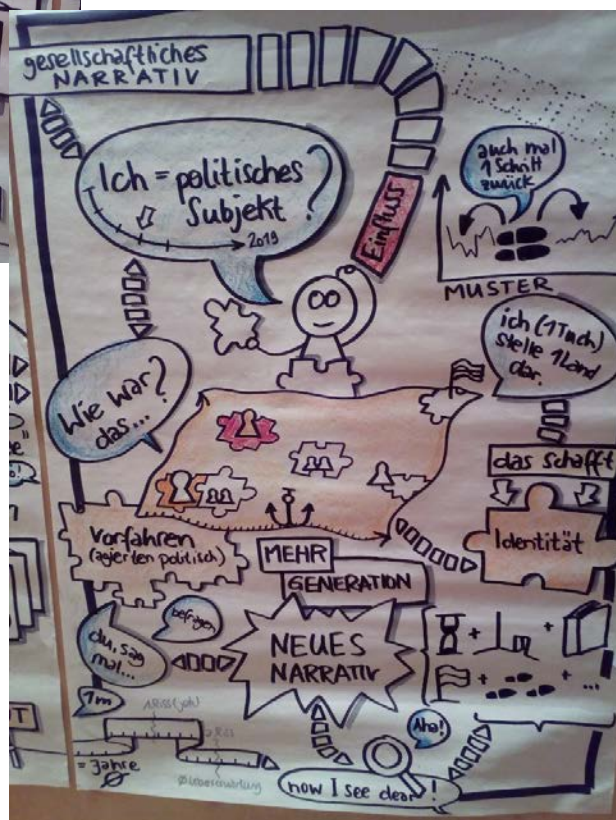 gesellschaftliches
NARRATIV
Ich = politisches
Subjekt ?
2019
Einfluss
auch mal
1 Schritt
zurück
MUSTER
ich (1 Tuch)
stelle 1 Land
dar.
Wie war
das... ?
das schafft
Identität
Vorfahren
(agierten politisch)
MEHR
GENERATION
befragen
du, sag
mal...
NEUES
NARRATIV
+
+
+
+ ...
1m
= Jahre
Aha!
now I see clear !